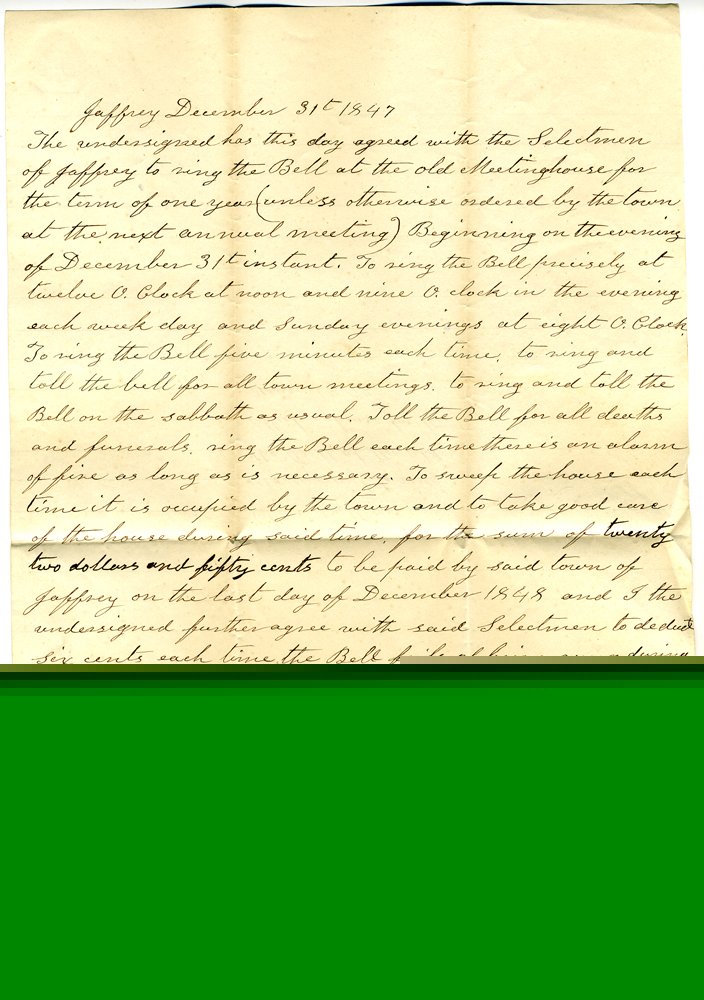 Jaffrey December 31t 1847
The undersigned has this day agreed with the Selectmen
of Jaffrey to ring the Bell at the old Meetinghouse for
the term of one year (unless otherwise ordered by the town
at the next annual meeting) Beginning on the evening
of December 31t instant. To ring the Bell precisely at
twelve O. Clock at noon and nine O. clock in the evening
each week day and Sunday evenings at eight O. Clock.
To ring the Bell five minutes each time. to ring and
toll the bell for all town meetings. to ring and toll the
Bell on the sabbath as usual. Toll the Bell for all deaths
and funerals. ring the Bell each time there is an alarm
of fire as long as is necessary. To sweep the house each
time it is occupied by the town and to take good care
of the house during said time. for the sum of twenty
two dollars and fifty cents to be paid by said town of
Jaffrey on the last day of December 1848 and I the
undersigned further agree with said Selectmen to deduct
six cents each time the Bell during